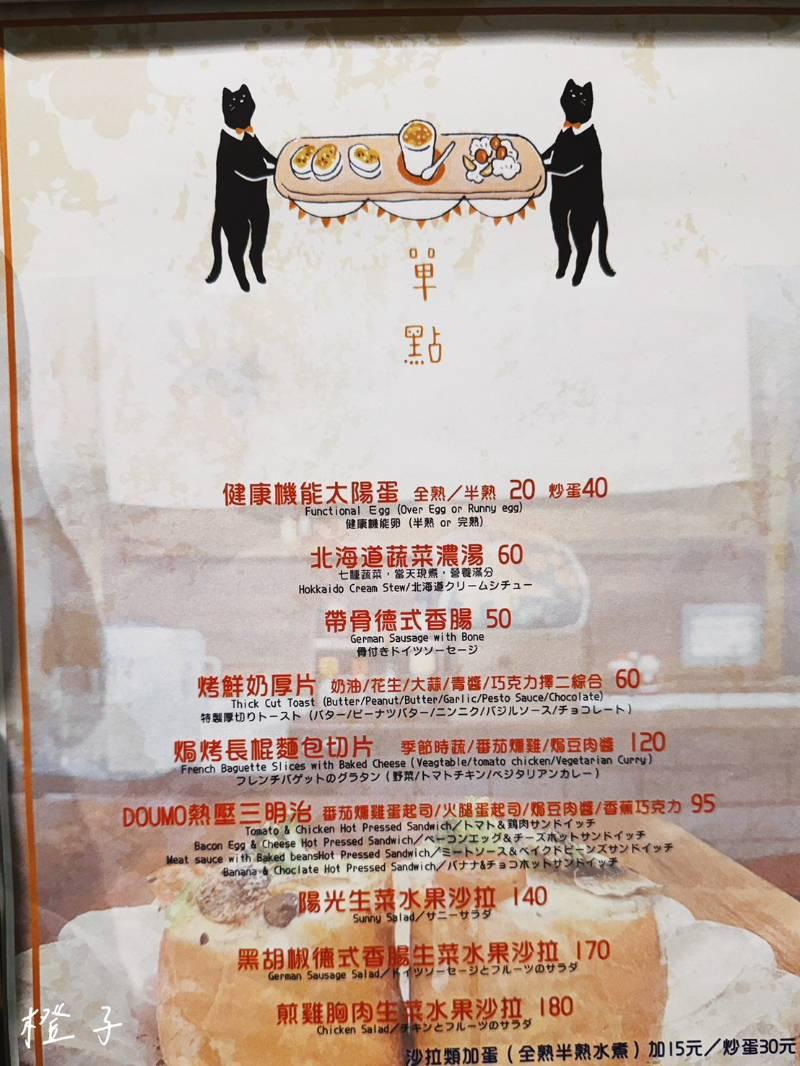 單
點
健康機能太陽蛋 全熟/半熟 20 炒蛋40
Functional Egg (Over Egg or Runny egg)
健康機能卵 (半熟 or 完熟)
北海道蔬菜濃湯 60
七種蔬菜,當天現煮,營養滿分
Hokkaido Cream Stew/北海道クリームシチュー
帶骨德式香腸 50
German Sausage with Bone
骨付きドイツソーセージ
烤鮮奶厚片 奶油/花生/大蒜/青醬/巧克力擇二綜合 60
Thick Cut Toast (Butter/Peanut/Butter/Garlic/Pesto Sauce/Chocolate)
特製厚切りトースト (バター/ピーナツバター/ニンニク/バジルソース/チョコレート)
焗烤長棍麵包切片 季節時蔬/番茄燻雞/焗豆肉醬 120
French Baguette Slices with Baked Cheese (Veagtable/tomato chicken/Vegetarian Curry)
フレンチバゲットのグラタン (野菜/トマトチキン/ベジタリアンカレー)
DOUMO熱壓三明治 番茄燻雞蛋起司/火腿蛋起司/焗豆肉醬/香蕉巧克力 95
Tomato & Chicken Hot Pressed Sandwich/トマト&鶏肉サンドイッチ
Bacon Egg & Cheese Hot Pressed Sandwich/ベーコンエッグ&チーズホットサンドイッチ
Meat sauce with Baked beansHot Pressed Sandwich/ミートソース&ベイクドビーンズサンドイッチ
Banana & Choclate Hot Pressed Sandwich/バナナ&チョコホットサンドイッチ
陽光生菜水果沙拉 140
Sunny Salad/サニーサラダ
黑胡椒德式香腸生菜水果沙拉 170
German Sausage Salad/ドイツソーセージとフルーツのサラダ
煎雞胸肉生菜水果沙拉 180
Chicken Salad/チキンとフルーツのサラダ
沙拉類加蛋(全熟半熟水煮)加15元/炒蛋30元
橙子